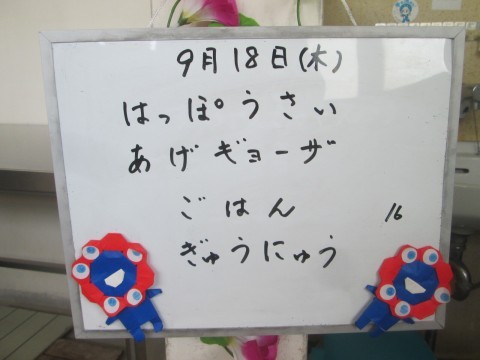 9月18日(木)
はっぽうさい
あげギョーザ
ごはん
16
ぎゅうにゅう